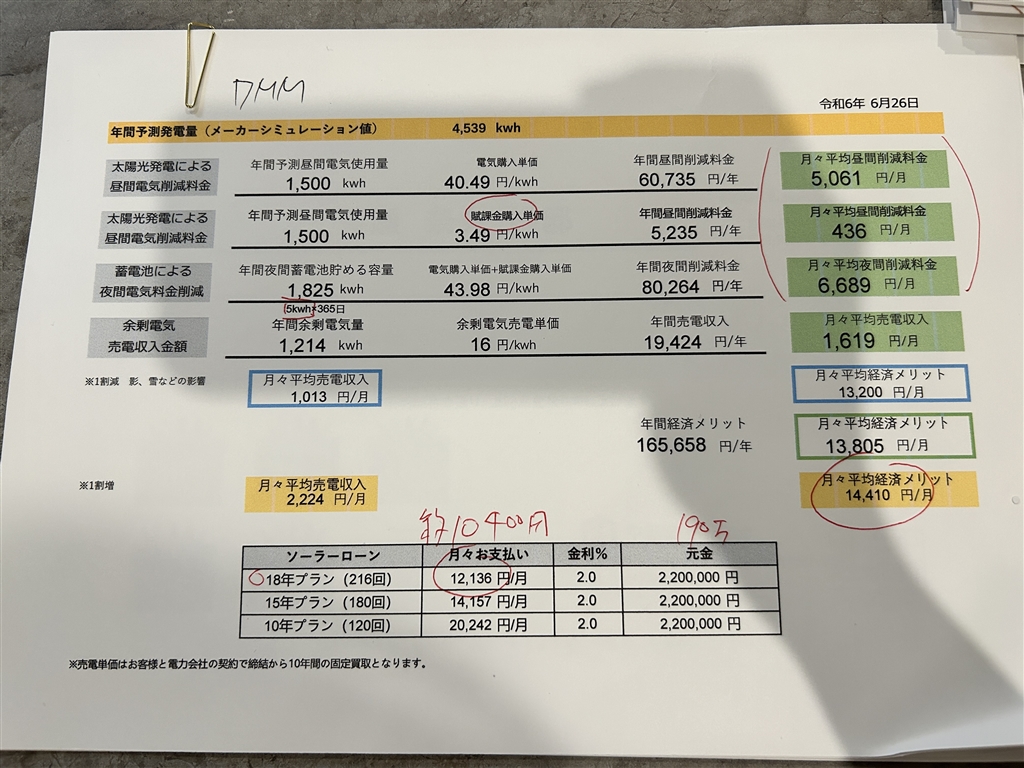 DMM
令和6年 6月26日
年間予測発電量（メーカーシミュレーション値） 4,539 kwh
太陽光発電による
昼間電気削減料金
年間予測昼間電気使用量
1,500 kwh
電気購入単価
40.49 円/kwh
年間昼間削減料金
60,735 円/年
月々平均昼間削減料金
5,061 円/月
太陽光発電による
昼間電気削減料金
年間予測昼間電気使用量
1,500 kwh
賦課金購入単価
3.49 円/kwh
年間昼間削減料金
5,235 円/年
月々平均昼間削減料金
436 円/月
蓄電池による
夜間電気料金削減
年間夜間蓄電池貯める容量
1,825 kwh
5kwh×365日
電気購入単価+賦課金購入単価
43.98 円/kwh
年間夜間削減料金
80,264 円/年
月々平均夜間削減料金
6,689 円/月
余剰電気
売電収入金額
年間余剰電気量
1,214 kwh
余剰電気売電単価
16 円/kwh
年間売電収入
19,424 円/年
月々平均売電収入
1,619 円/月
※1割減 影、雪などの影響
月々平均売電収入
1,013 円/月
月々平均経済メリット
13,200 円/月
年間経済メリット
165,658 円/年
月々平均経済メリット
13,805 円/月
※1割増
月々平均売電収入
2,224 円/月
月々平均経済メリット
14,410 円/月
約10400円
190万
ソーラーローン 月々お支払い 金利% 元金
18年プラン（216回） 12,136 円/月 2.0 2,200,000 円
15年プラン（180回） 14,157 円/月 2.0 2,200,000 円
10年プラン（120回） 20,242 円/月 2.0 2,200,000 円
※売電単価はお客様と電力会社の契約で締結から10年間の固定買取となります。